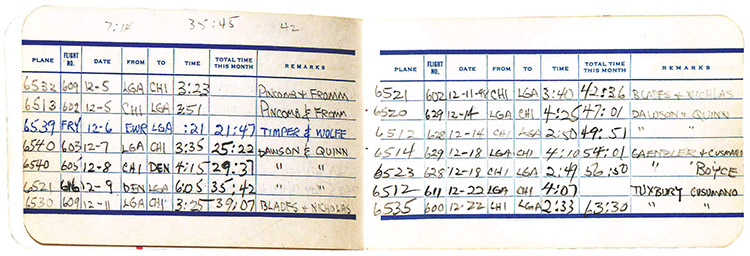 7:14 35:45 42
PLANE FLIGHT NO. DATE FROM TO TIME TOTAL TIME THIS MONTH REMARKS
6532 609 12-5 LGA CHI 3:23 PINCOMB & FROMM
6513 622 12-5 CHI LGA 3:51 PINCOMB & FROMM
6539 FRY 12-6 EWR LGA :21 21:47 TIMPER & WOLFE
6540 603 12-7 LGA CHI 3:35 25:22 DAWSON & QUINN
6540 605 12-8 CHI DEN 4:15 29:37 " "
6521 616 12-9 DEN LGA 6:05 35:42 " "
6530 609 12-11 LGA CHI 3:25 39:07 BLADES & NICHOLAS
PLANE FLIGHT NO. DATE FROM TO TIME TOTAL TIME THIS MONTH REMARKS
6521 602 12-11-48 CHI LGA 3:40 42:36 BLADES & NICHLAS
6520 629 12-14 LGA CHI 4:25 47:01 DAWSON & QUINN
6512 628 12-14 CHI LGA 2:50 49:51 " "
6514 629 12-18 LGA CHI 4:10 54:01 & CUSUMANO
6523 628 12-18 CHI LGA 2:49 56:50 " BOYCE
6512 611 12-22 LGA CHI 4:07 TUXBURY CUSUMANO
6535 600 12-22 CHI LGA 2:33 63:30 " "